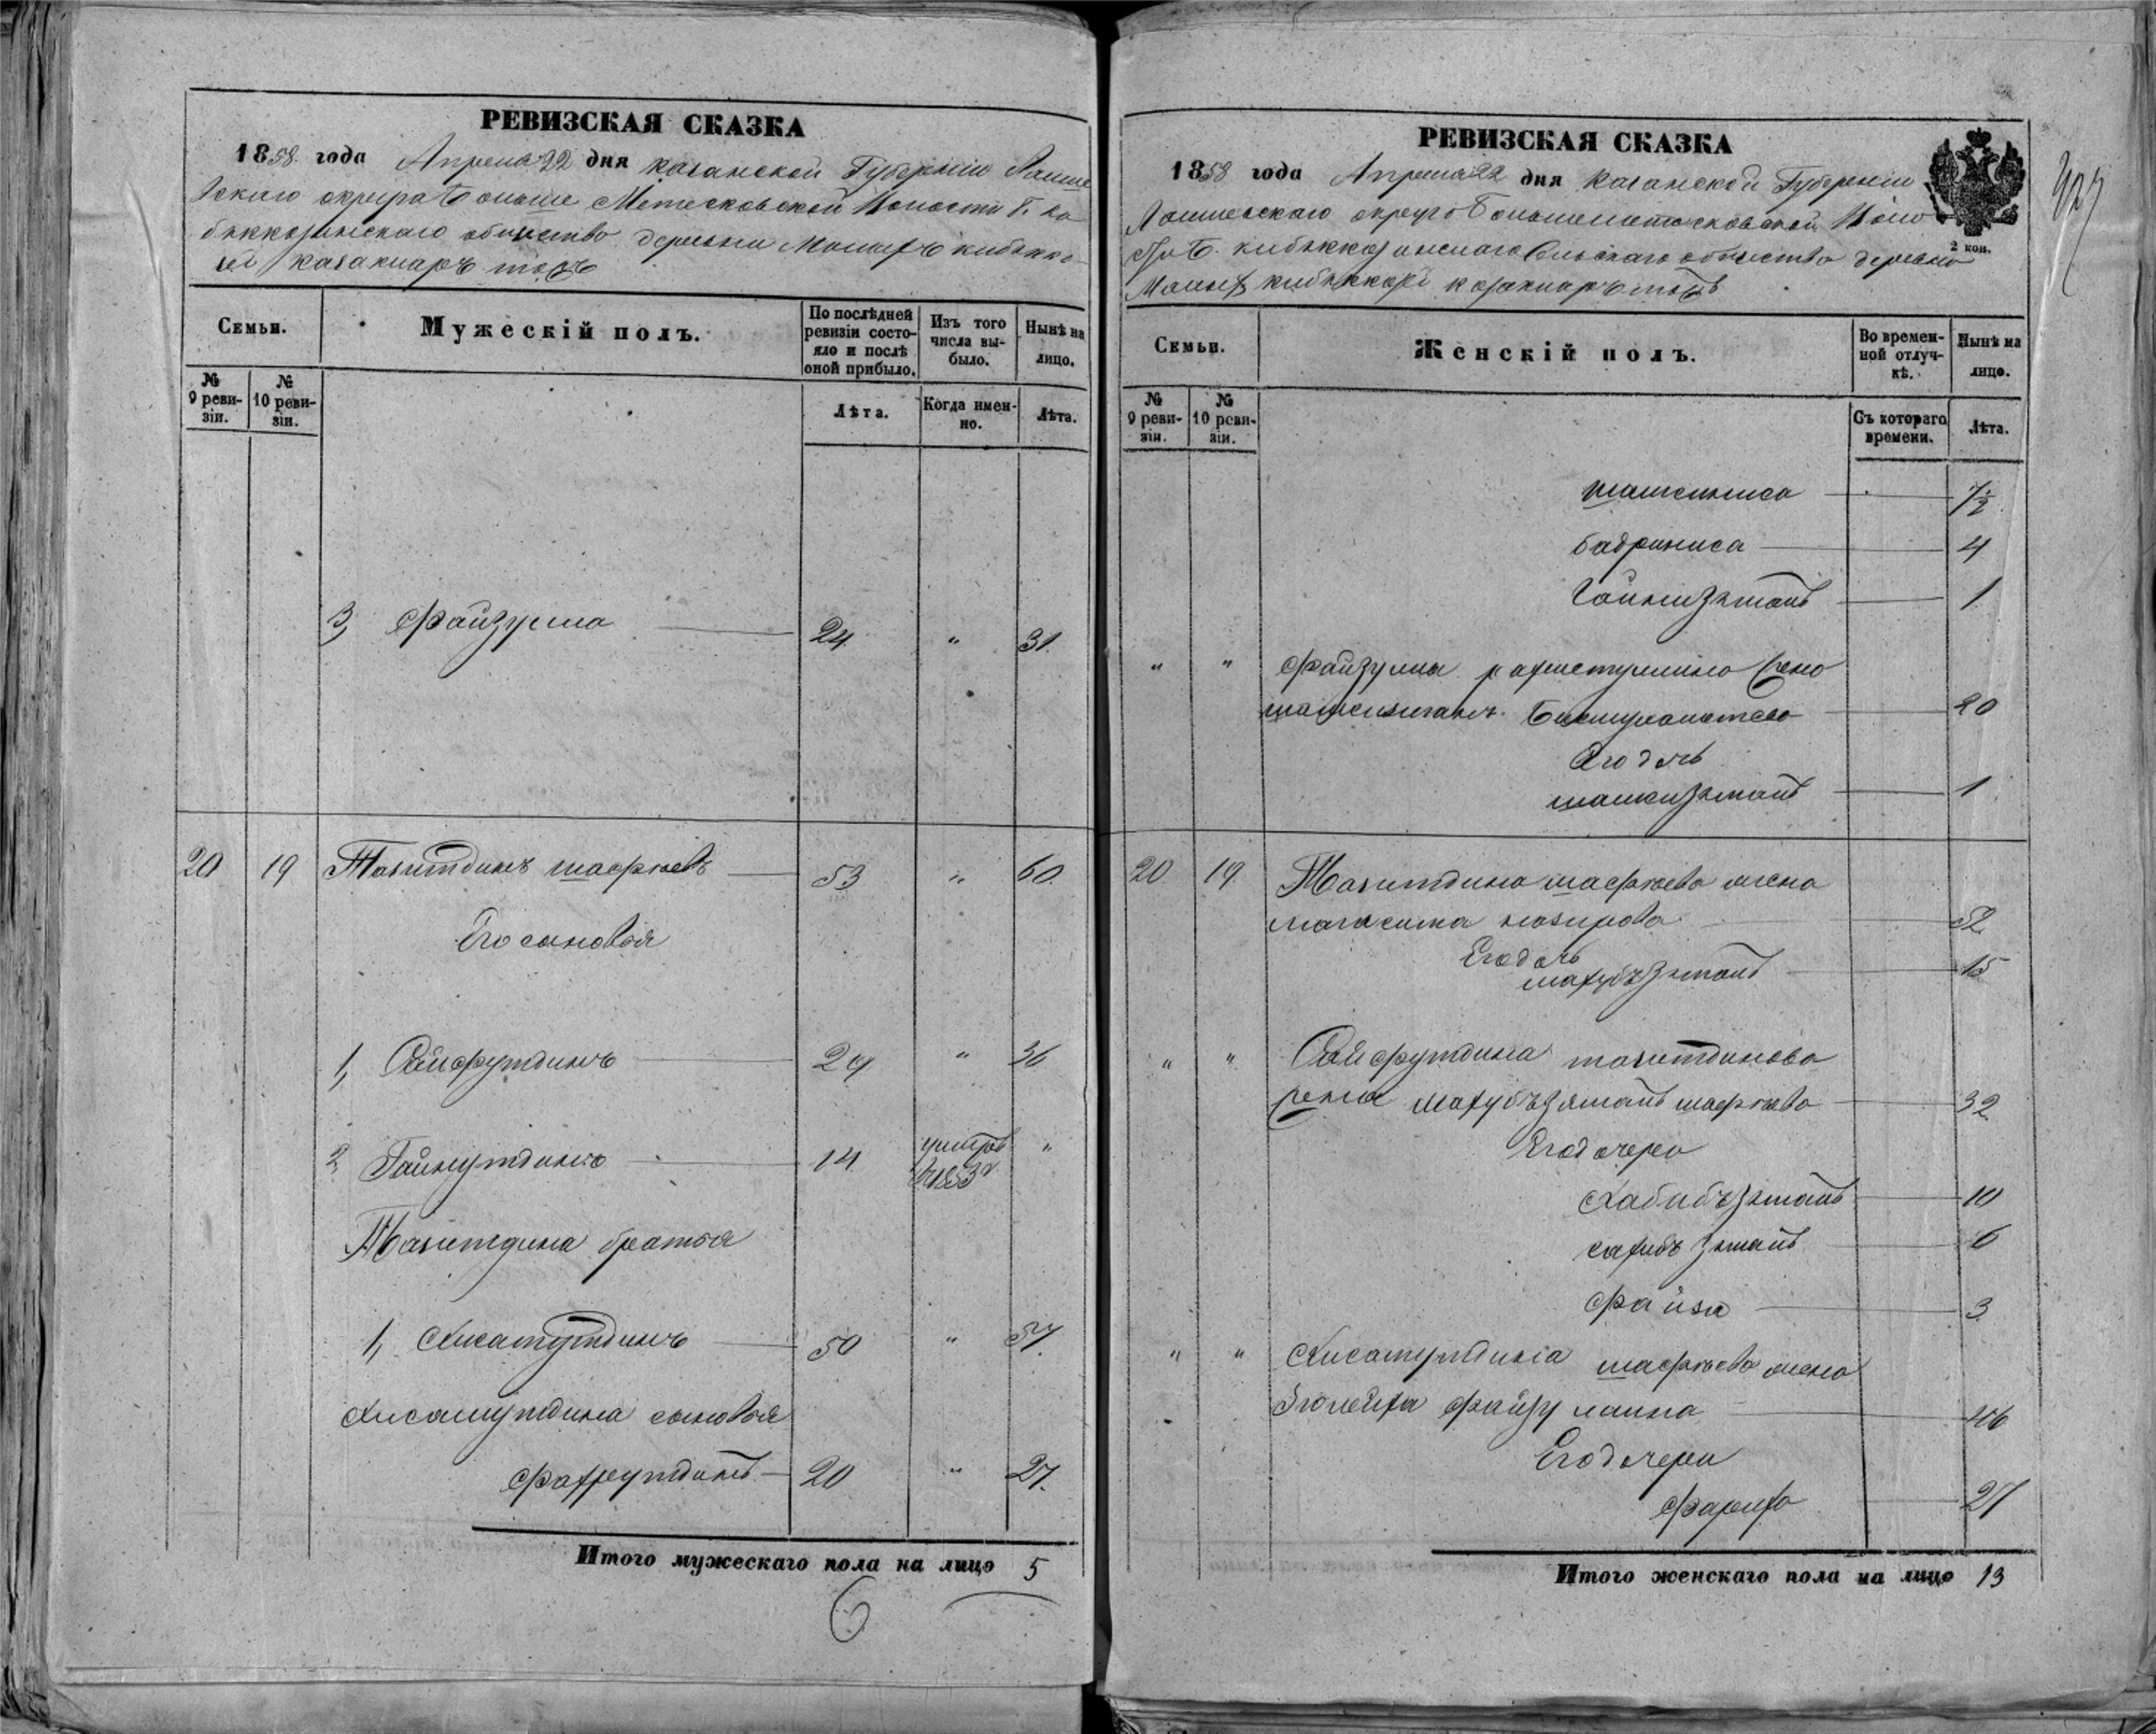 РЕВИЗСКАЯ СКАЗКА
1858 года Апреля 22 дня Казанской Губернiи Лаише
вскаго округа Больше Метесковской Волости Б. Ки
бяккозинскаго общество деревни Малыхъ Кибякко
зи казакларъ тожъ
Семьи.
Мужескiй полъ.
По послѣдней ревизiи состояло и послѣ оной прибыло.
Изъ того числа выбыло.
Нынѣ на лицо.
№ 9 ревизiи.
№ 10 ревизiи.
Лѣта.
Когда именно.
Лѣта.
3, Файзулла 24 " 31.
20 19 Тазитдинъ Шафѣевъ 53 " 60.
Его сыновья
1, Сайфутдинъ 29 " 36
2, Гайнутдинъ 14 умеръ в 1853 г "
Тазитдина братья
1, Хисамутдинъ 50 " 57.
Хисамутдина сыновья
Фахрутдинъ 20 " 27.
Итого мужескаго пола на лицо 5
6
РЕВИЗСКАЯ СКАЗКА
1858 года Апреля 22 дня Казанской Губернiи
Лаишевскаго округа Большеметесковской Воло
Б. Кибяккозинскаго Сельскаго общества деревни
Малыхъ Кибяккози казакларъ тожъ
2 коп.
Семьи.
Женскiй полъ.
Во временной отлучкѣ.
Нынѣ на лицо.
№ 9 ревизiи.
№ 10 ревизiи.
Съ котораго времени.
Лѣта.
Шамсиниса 7½
Бадриниса 4
1
" " Файзуллы жена
20
Его дочь
1
20 19 Тазитдина Шафѣева жена
52
Его дочь
15
" " Сайфутдина Тазитдинова
жена Махубъзямалъ Шафѣева 32
Его дочери
Хабибъзямалъ 10
Сахибъзямалъ 6
Файза 3
" " Хисамутдина Шафѣева жена
Зюлейха Файзуллина 46
Его дочери
Фариха 27
Итого женскаго пола на лицо 13